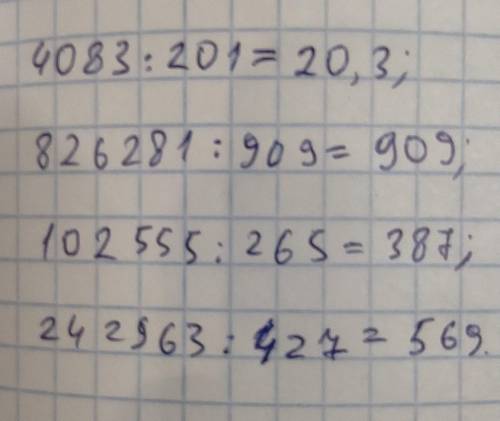 4083:201=20,3;
826281:909=909;
102555:265=387;
242963:427=569.